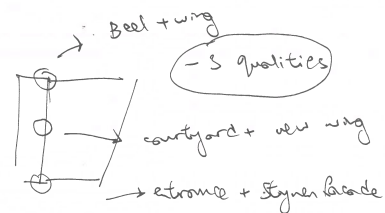 Beel + wing
- 3 qualities
courtyard + new wing
entrance + facade